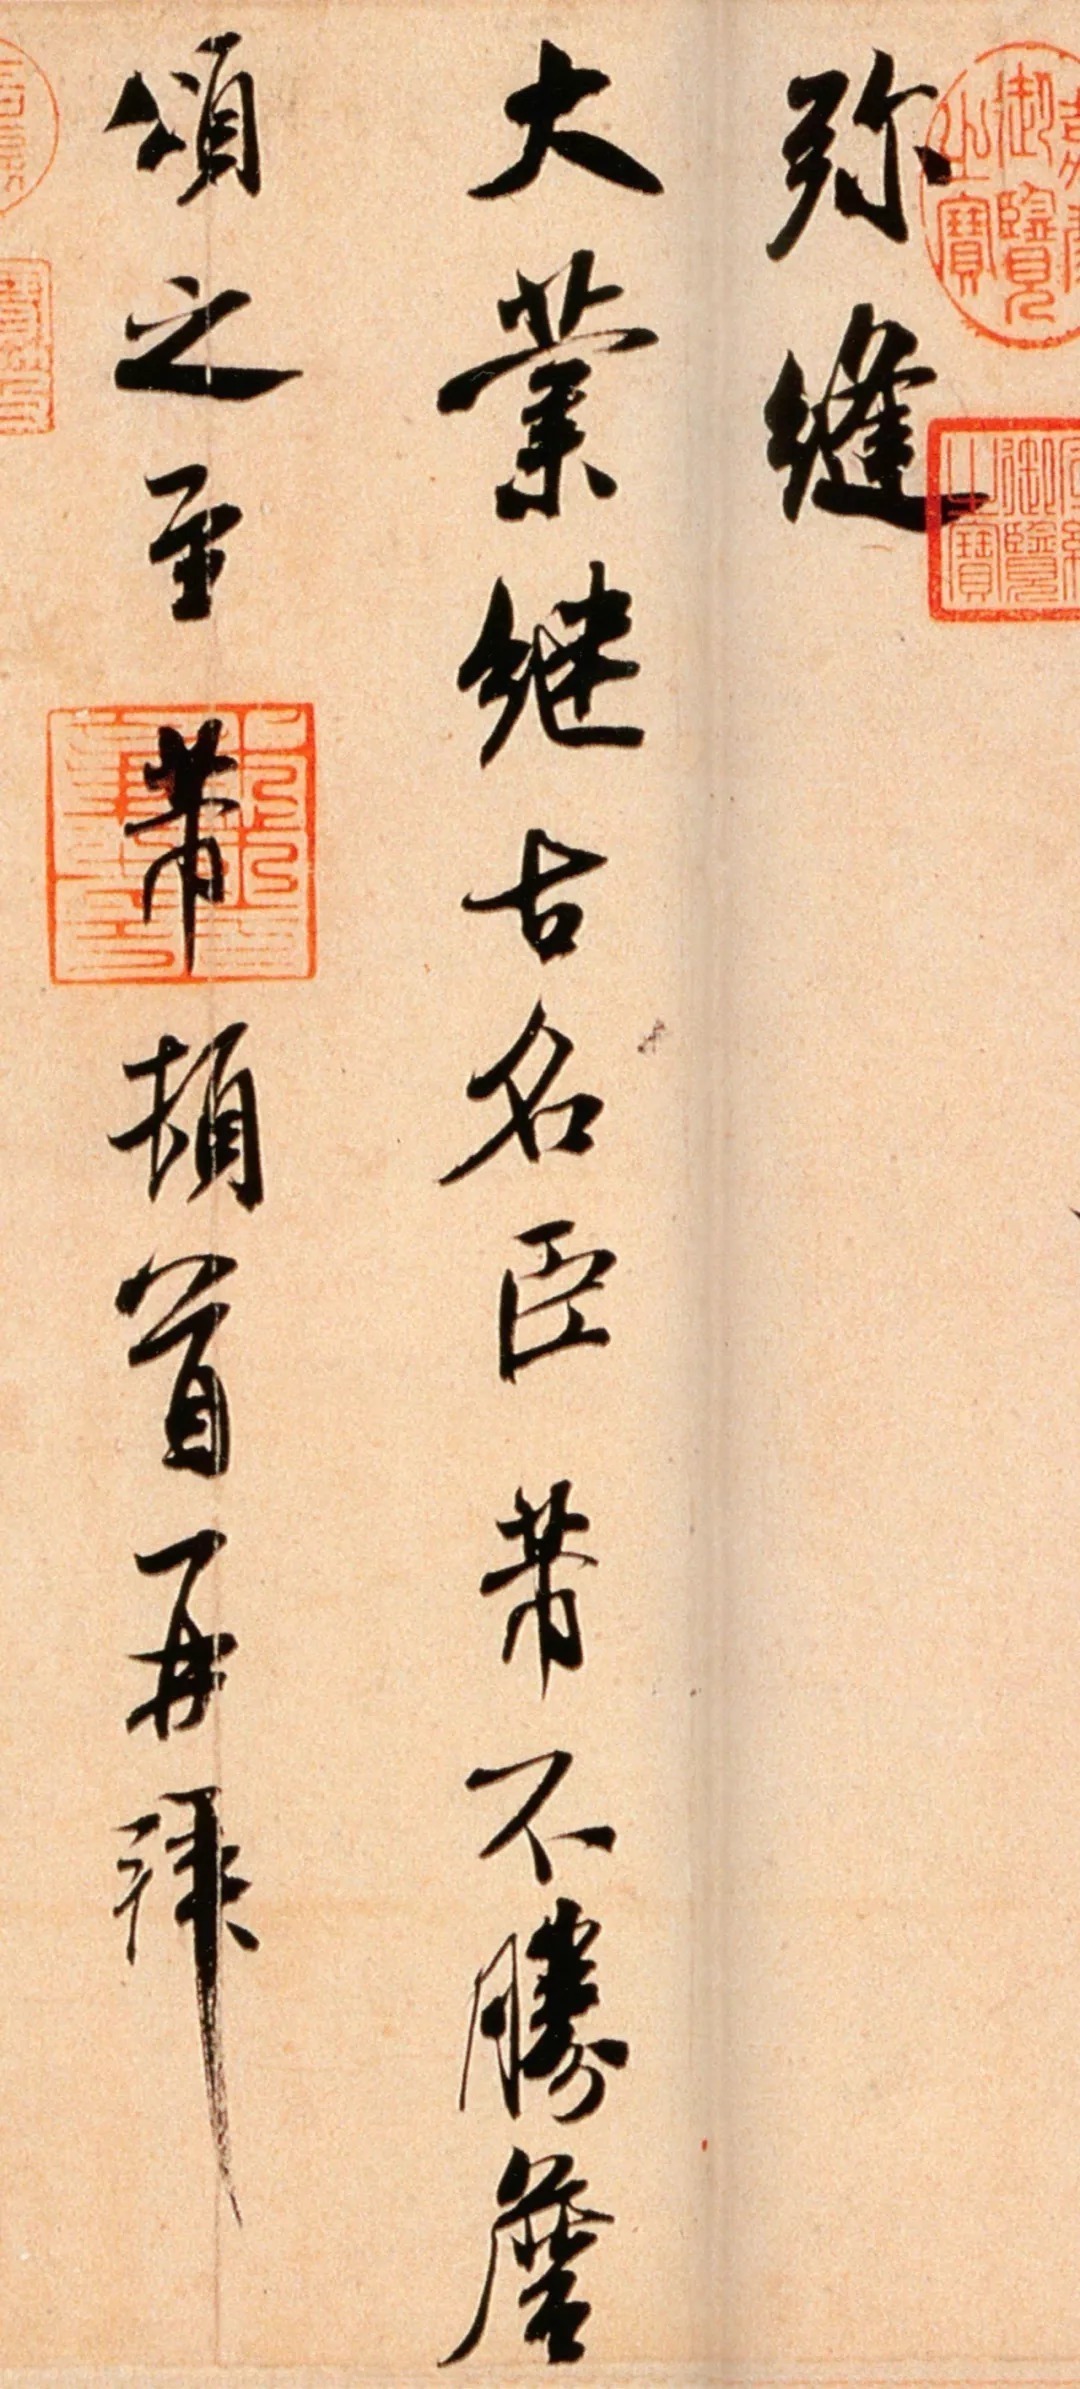 嘉慶御覽之寶
御覽之寶
弥縫
大業継古名臣芾不勝詹
頌之至芾頓首再拜